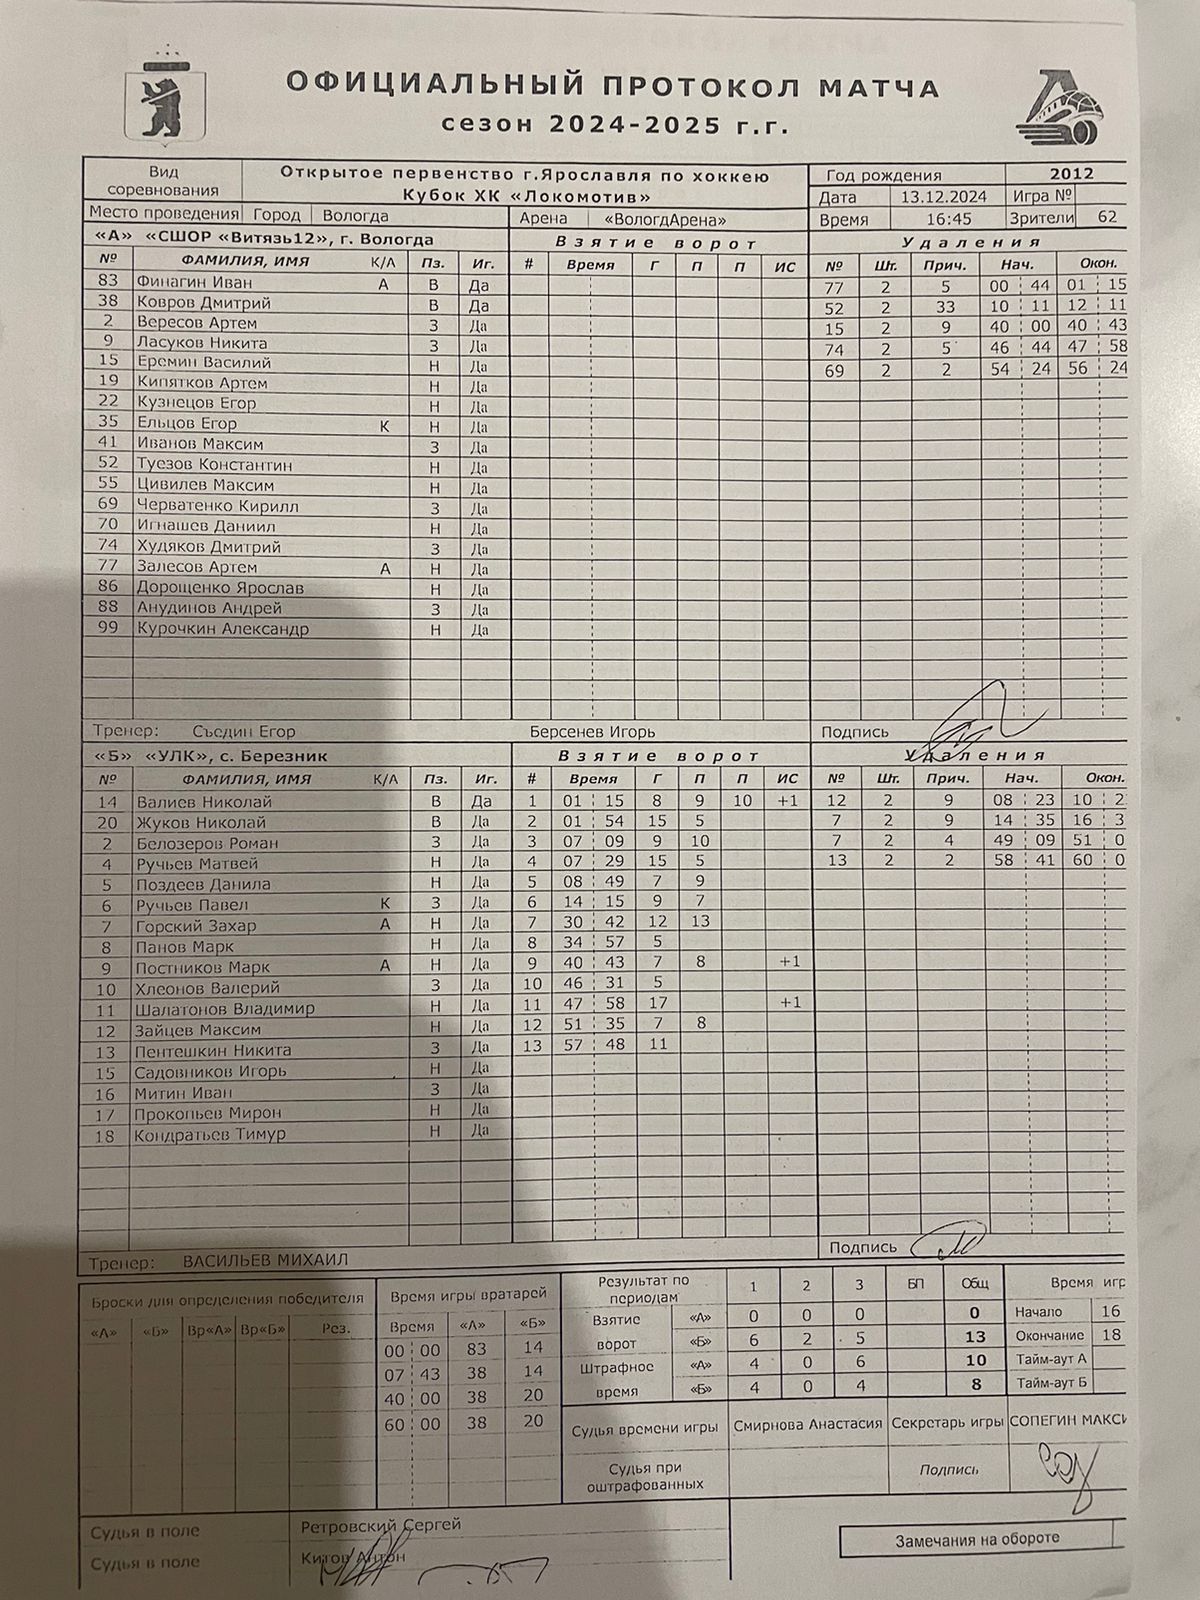 ОФИЦИАЛЬНЫЙ ПРОТОКОЛ МАТЧА
сезон 2024-2025 г.г.
Вид соревнования Открытое первенство г.Ярославля по хоккею Кубок ХК «Локомотив» Год рождения 2012
Дата 13.12.2024 Игра №
Место проведения Город Вологда Арена «ВологдАрена» Время 16:45 Зрители 62
«А» «СШОР «Витязь12», г. Вологда Взятие ворот Удаления
№ ФАМИЛИЯ, ИМЯ К/А Пз. Иг. # Время Г П П ИС № Шт. Прич. Нач. Окон.
83 Финагин Иван А В Да 77 2 5 00 44 01 15
38 Ковров Дмитрий В Да 52 2 33 10 11 12 11
2 Вересов Артем З Да 15 2 9 40 00 40 43
9 Ласуков Никита З Да 74 2 5 46 44 47 58
15 Еремин Василий Н Да 69 2 2 54 24 56 24
19 Кипятков Артем Н Да
22 Кузнецов Егор Н Да
35 Ельцов Егор К Н Да
41 Иванов Максим З Да
52 Туезов Константин Н Да
55 Цивилев Максим Н Да
69 Черватенко Кирилл З Да
70 Игнашев Даниил Н Да
74 Худяков Дмитрий З Да
77 Залесов Артем А Н Да
86 Дорощенко Ярослав Н Да
88 Анудинов Андрей З Да
99 Курочкин Александр Н Да
Тренер: Съедин Егор Берсенев Игорь Подпись
«Б» «УЛК», с. Березник Взятие ворот Удаления
№ ФАМИЛИЯ, ИМЯ К/А Пз. Иг. # Время Г П П ИС № Шт. Прич. Нач. Окон.
14 Валиев Николай В Да 1 01 15 8 9 10 +1 12 2 9 08 23 10 2
20 Жуков Николай В Да 2 01 54 15 5 7 2 9 14 35 16 3
2 Белозеров Роман З Да 3 07 09 9 10 7 2 4 49 09 51 0
4 Ручьев Матвей Н Да 4 07 29 15 5 13 2 2 58 41 60 0
5 Поздеев Данила Н Да 5 08 49 7 9
6 Ручьев Павел К З Да 6 14 15 9 7
7 Горский Захар А Н Да 7 30 42 12 13
8 Панов Марк Н Да 8 34 57 5
9 Постников Марк А Н Да 9 40 43 7 8 +1
10 Хлеонов Валерий З Да 10 46 31 5
11 Шалатонов Владимир Н Да 11 47 58 17 +1
12 Зайцев Максим Н Да 12 51 35 7 8
13 Пентешкин Никита З Да 13 57 48 11
15 Садовников Игорь Н Да
16 Митин Иван З Да
17 Прокопьев Мирон Н Да
18 Кондратьев Тимур Н Да
Тренер: ВАСИЛЬЕВ МИХАИЛ Подпись
Броски для определения победителя Время игры вратарей Результат по периодам 1 2 3 БП Общ Время игр
«А» «Б» Вр«А» Вр«Б» Рез. Время «А» «Б»
Взятие ворот «А» 0 0 0 0 Начало 16
«Б» 6 2 5 13 Окончание 18
Штрафное время «А» 4 0 6 10 Тайм-аут А
«Б» 4 0 4 8 Тайм-аут Б
00 00 83 14
07 43 38 14
40 00 38 20
60 00 38 20
Судья времени игры Смирнова Анастасия Секретарь игры СОПЕГИН МАКСИ
Судья при оштрафованных Подпись
Судья в поле Ретровский Сергей
Судья в поле Китов Антон
Замечания на обороте